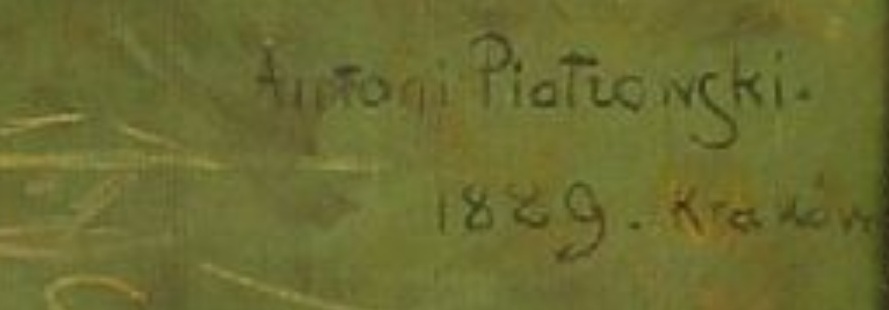 Antoni Piotrowski.
1889. Kraków